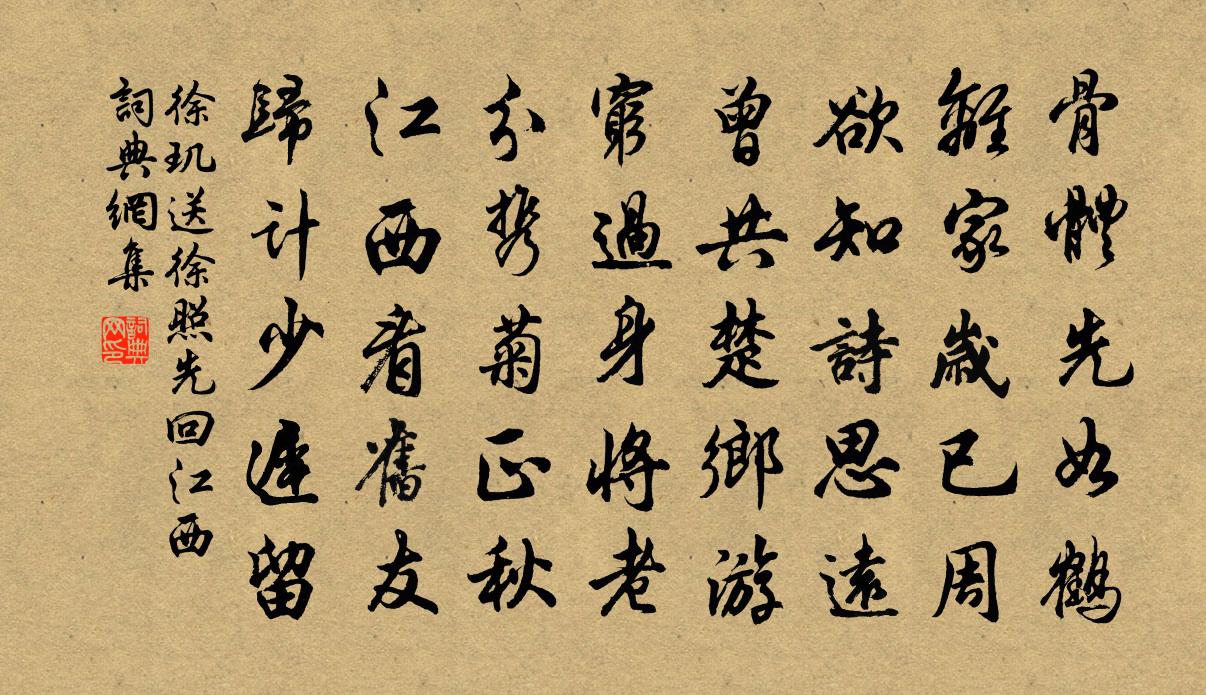 骨體先如鶴
離家歲已周
欲知詩思遠
曾共楚鄉游
窮過身將老
分携菊正秋
江西看舊友
歸計少遲留
徐玑送徐照先回江西
詞典網集
詞典网印